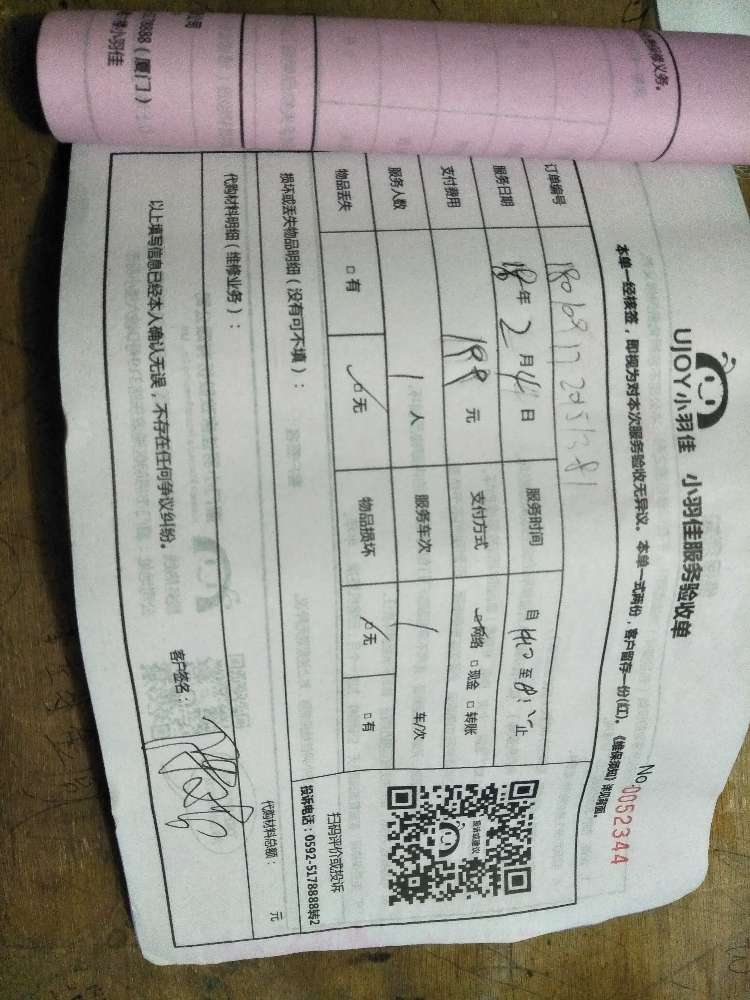 UJOY小羽佳 小羽佳服务验收单
No 0052344
本单一经核签，即视为对本次服务验收无异议。本单一式两份，客户留存一份(红)。《维保须知》详见背面。
订单编号
服务日期 18年2月 日 服务时间 自 至 止
支付费用 198元 支付方式 网络 □现金 □转账
服务人数 1人 服务车次 1 车/次
物品丢失 □有 ✓□无 物品损坏 ✓□无 □有
投诉或建议
扫码评价或投诉
投诉电话：0592-5178888转2
损坏或丢失物品明细（没有可不填）：
代购材料明细（维修业务）：
代购材料总额： 元
以上填写信息已经本人确认无误，不存在任何争议纠纷。
客户签名：
修义务。
78888（厦门）
小羽佳